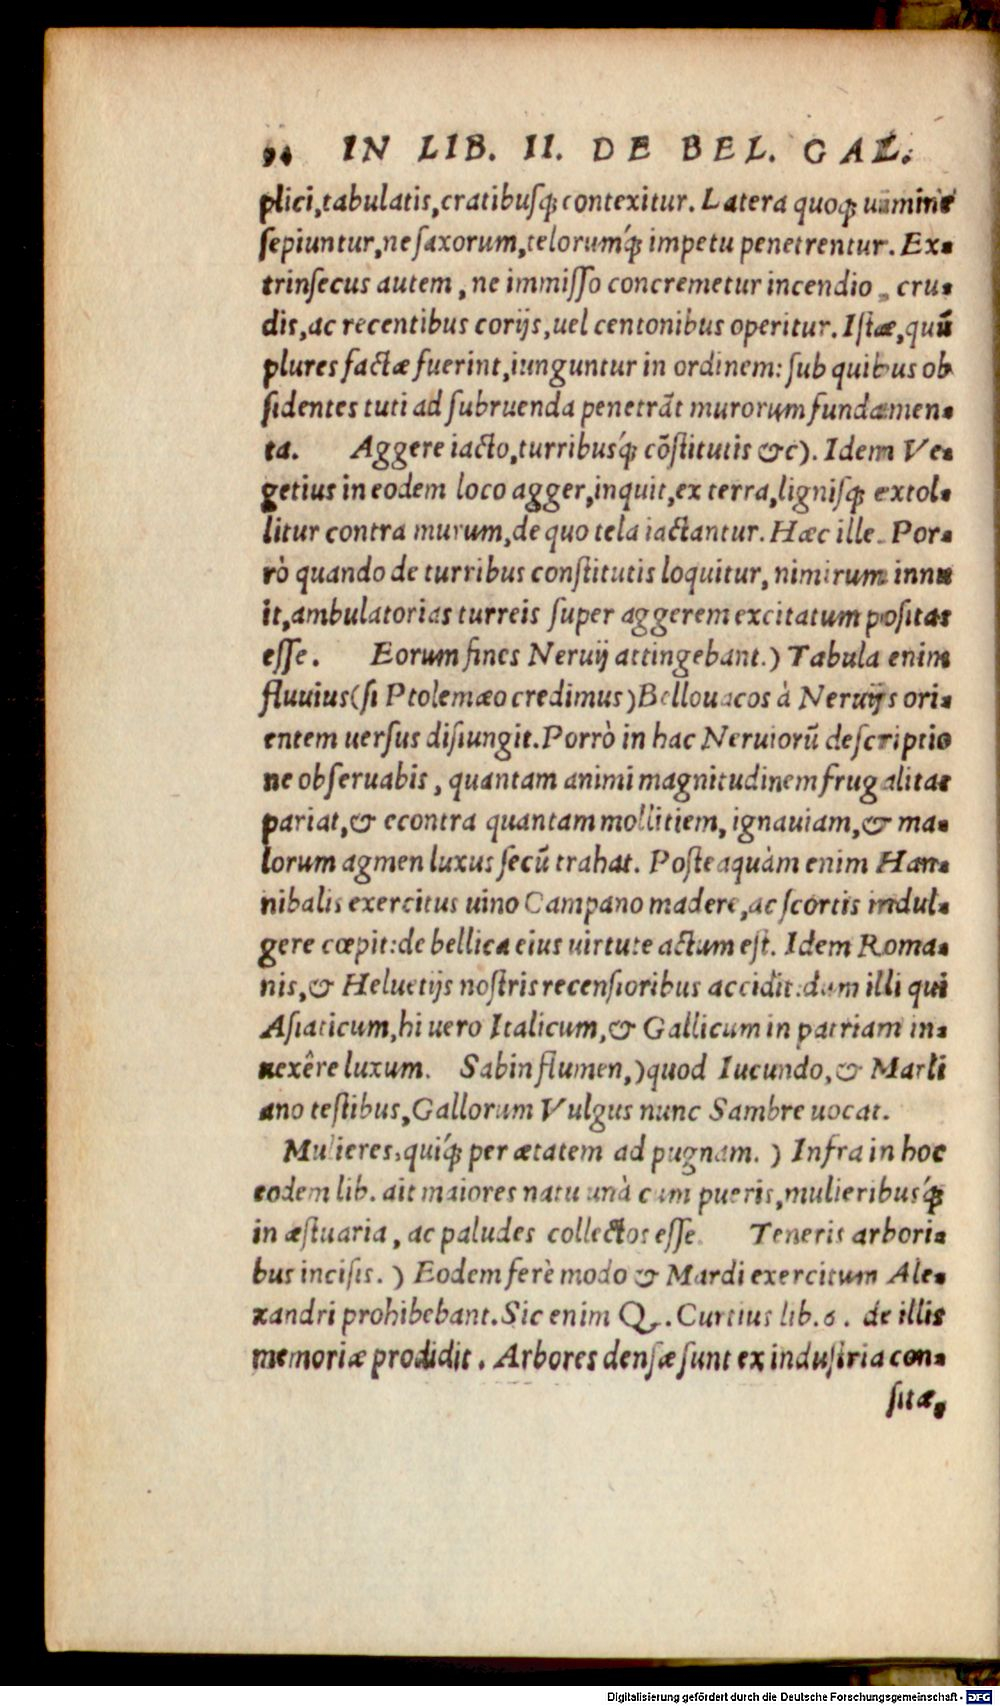 94 IN LIB. II. DE BEL. GAL.
plici, tabulatis, cratibusq́; contexitur. Latera quoq; uimine
sepiuntur, ne saxorum, telorumq́; impetu penetrentur. Ex-
trinsecus autem, ne immisso concremetur incendio, cru-
dis, ac recentibus corijs, uel centonibus operitur. Istæ, quũ
plures factæ fuerint, iunguntur in ordinem: sub quibus ob
sidentes tuti ad subruenda penetrãt murorum fundamen-
ta. Aggere iacto, turribusq́; cõstitutis &c). Idem Ve-
getius in eodem loco agger, inquit, ex terra, lignisq; extol-
litur contra murum, de quo tela iactantur. Hæc ille. Por-
rò quando de turribus constitutis loquitur, nimirum innu
it, ambulatorias turreis super aggerem excitatum positas
esse. Eorum fines Neruij attingebant.) Tabula enim
fluuius (si Ptolemæo credimus) Bellouacos à Neruijs ori-
entem uersus disiungit. Porrò in hac Neruiorũ descriptio
ne obseruabis, quantam animi magnitudinem frugalitas
pariat, & econtra quantam mollitiem, ignauiam, & ma-
lorum agmen luxus secũ trahat. Posteaquàm enim Han-
nibalis exercitus uino Campano madere, ac scortis indul-
gere cœpit: de bellica eius uirtute actum est. Idem Roma-
nis, & Heluetijs nostris recensioribus accidit: dum illi qui
Asiaticum, hi uero Italicum, & Gallicum in patriam in-
uexêre luxum. Sabin flumen,) quod Iucundo, & Marli
ano testibus, Gallorum Vulgus nunc Sambre uocat.
Mulieres, quiq́; per ætatem ad pugnam. ) Infra in hoc
eodem lib. ait maiores natu unà cum pueris, mulieribusq́;
in æstuaria, ac paludes collectos esse. Teneris arbori-
bus incisis. ) Eodem ferè modo & Mardi exercitum Ale-
xandri prohibebant. Sic enim Q. Curtius lib. 6. de illis
memoriæ prodidit. Arbores densæ sunt ex industria con-
sitæ,
Digitalisierung gefördert durch die Deutsche Forschungsgemeinschaft - DFG